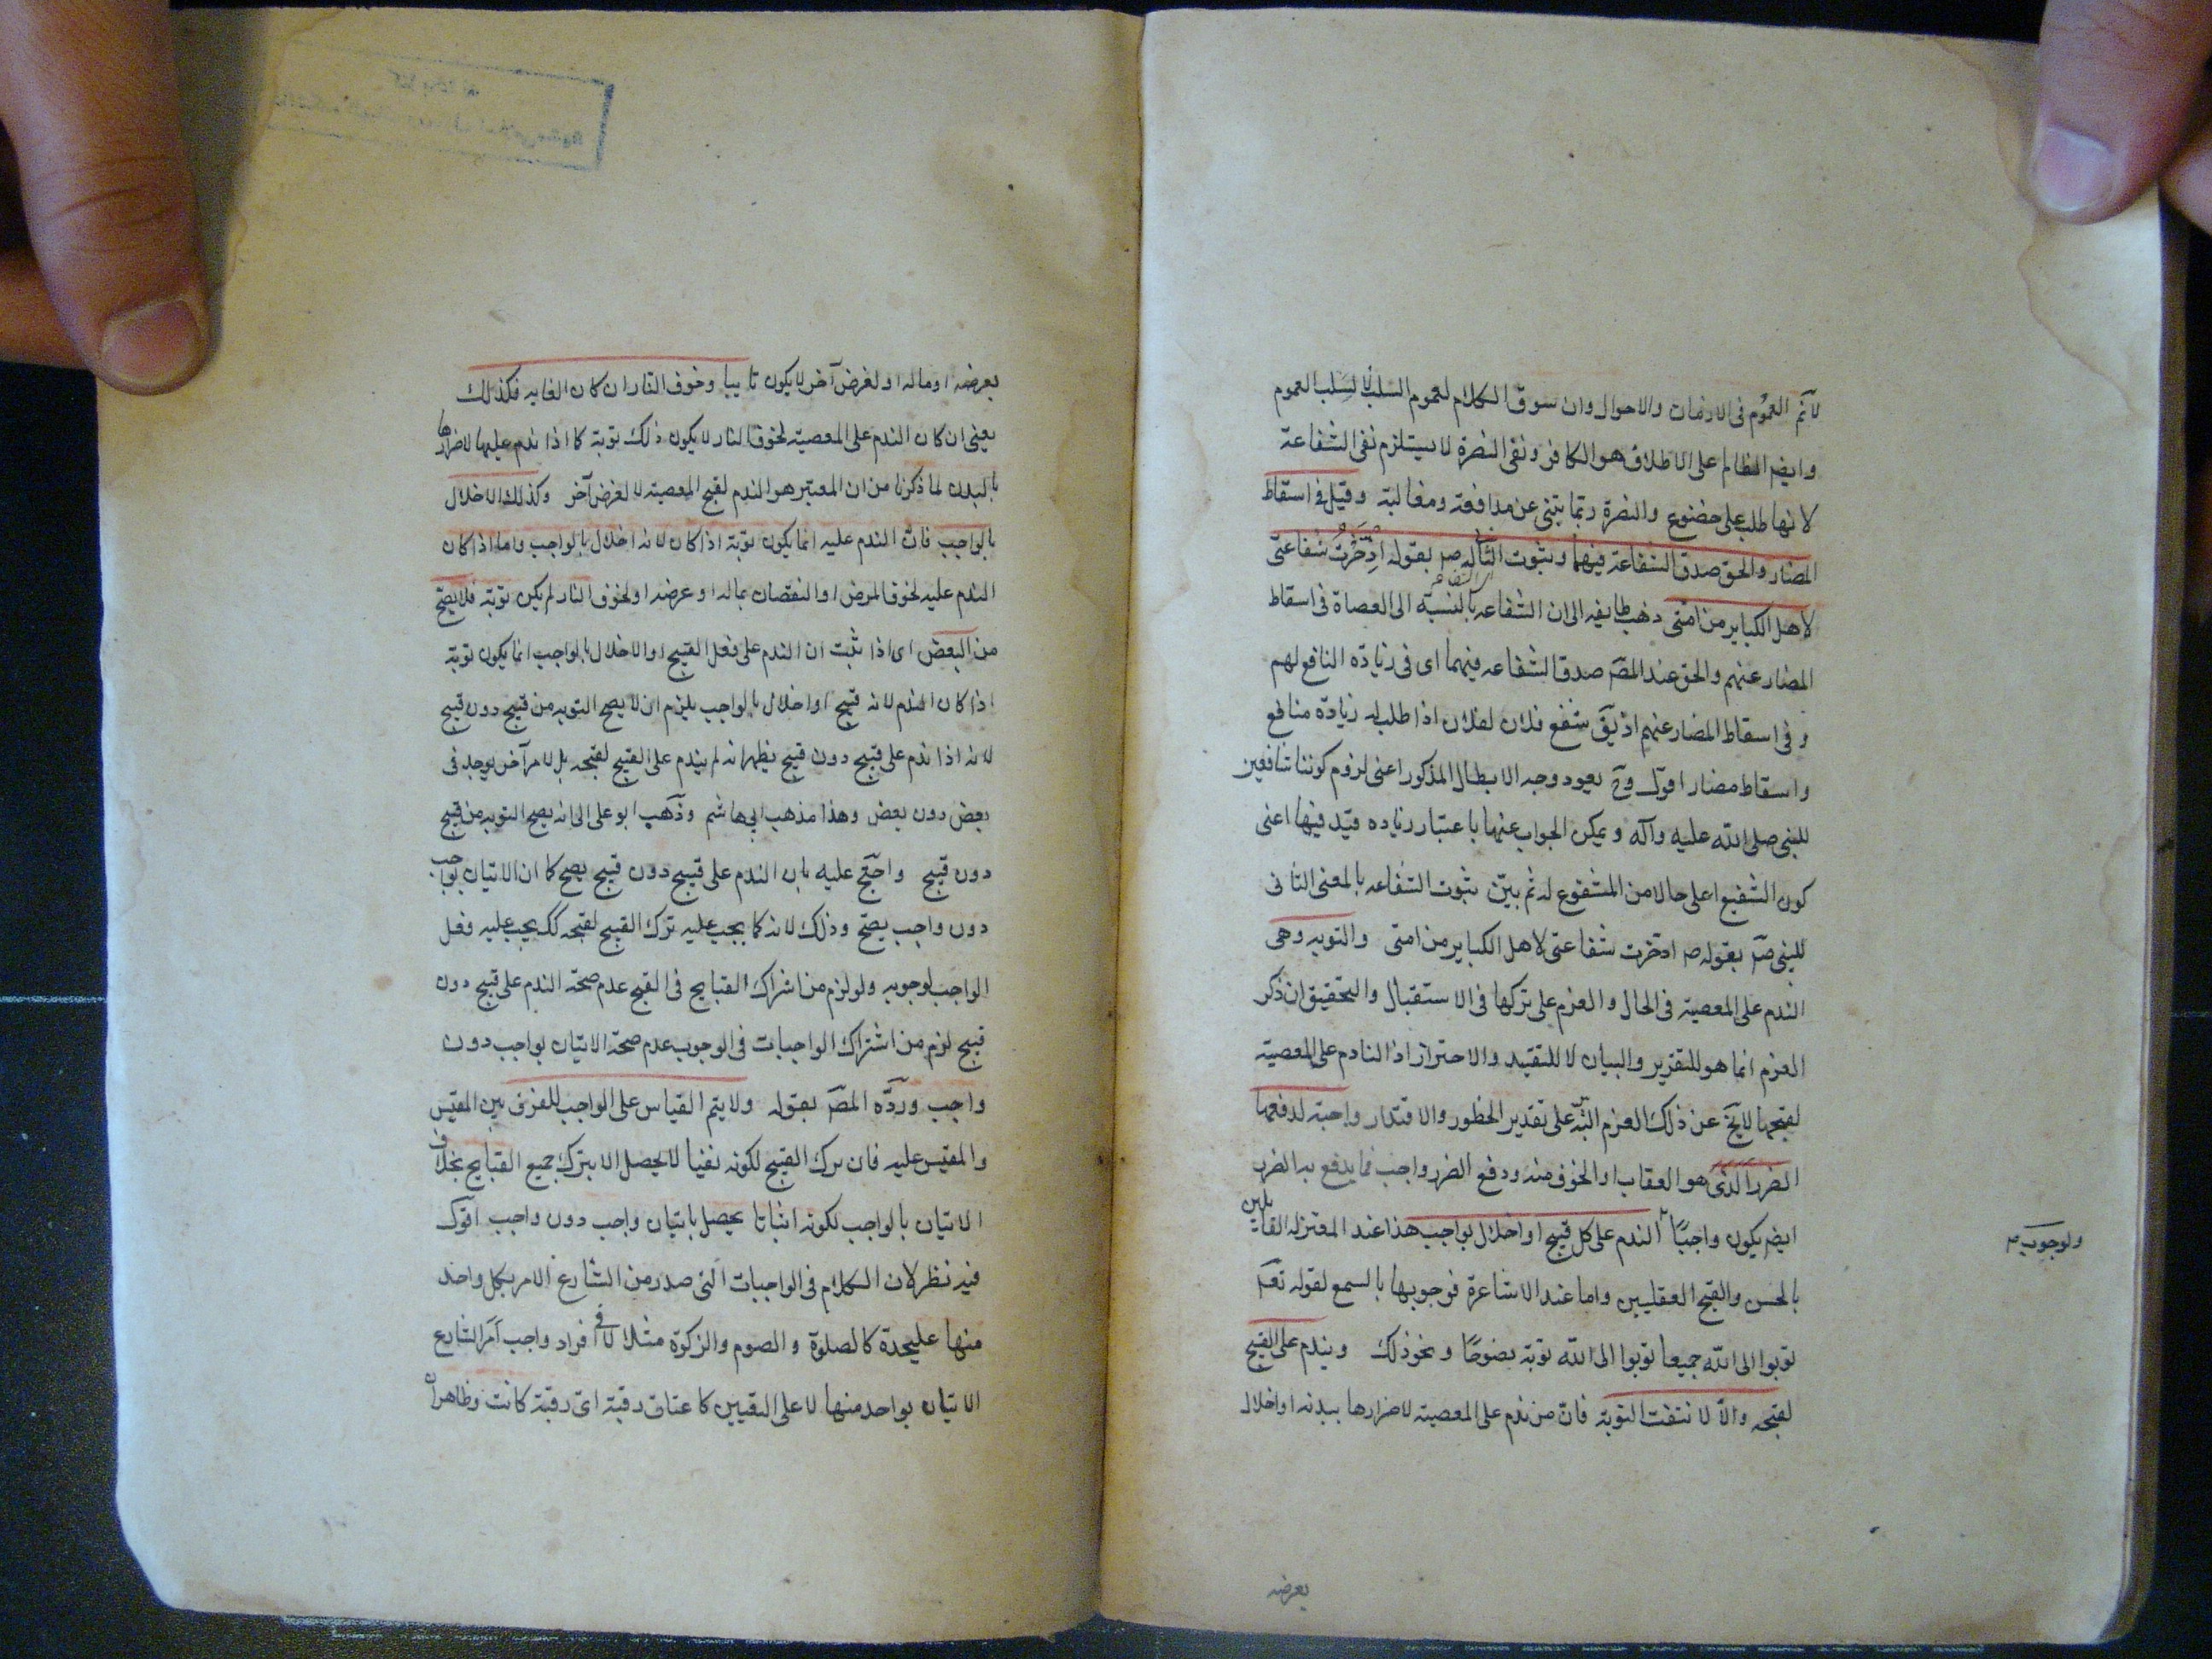 لانم العموم فى الازمان والاحوال وان سوق الكلام لعموم السلب لا لسلب العموم
وايضا الظالم على الاطلاق هو الكافر ونفى النصرة لا يستلزم نفى الشفاعة
لانها طلب على خضوع والنصرة ربما ينبى عن مدافعة ومغالبة وقيل فى اسقاط
المضار والحق صدق الشفاعة فيهما وبثبوت الثانى له صم بقوله ادّخرتُ شفاعتى
اى الشفاعة
لاهل الكباير من امتى ذهب طايفه الى ان الشفاعه بالنسبة الى العصاة فى اسقاط
المضار عنهم والحق عند المصّ صدق الشفاعه فيهما اى فى زيادة النافع لهم
و فى اسقاط المضار عنهم اذ يقَ شفع فلان لفلان اذا طلب له زيادة منافع
واسقاط مضار اقول وحَ يعود وجه الابطال المذكور اعنى لزوم كوننا شافعين
للنبى صلى الله عليه وآله ويمكن الجواب عنها باعتبار زياده قيد فيها اعنى
كون الشفيع اعلى حالا من المشفوع له ثم بيّن ثبوت الشفاعه بالمعنى الثانى
للنبى صم بقوله ص ادخرت شفاعتى لاهل الكباير من امتى والتوبه وهى
الندم على المعصية فى الحال والعزم على تركها فى الاستقبال والتحقيق ان ذكر
العزم انما هو للتقرير والبيان لا للتقييد والاحتراز اذ النادم على المعصية
لقبحها لا يخ عن ذلك العزم البتّه على تقدير الخطور والاقتدار واجبة لدفعها
الضرر الذى هو العقاب او الخوف منه ودفع الضرر واجب فما يدفع به الضرر
ايضا يكون واجبًا الندم على كل قبيح او اخلال بواجب هذا عند المعتزله القايلين
ولوجوب ص
بالحسن والقبح العقليين واما عند الاشاعرة فوجوبها بالسمع لقوله تعم
توبوا الى الله جميعا توبوا الى الله توبة نصوحًا ونحو ذلك ويندم على القبيح
لقبحه والّا لانتفت التوبة فانّ من ندم على المعصية لاضرارها ببدنه او اخلال
بعرضه
بعرضه او ماله او لغرض آخر لا يكون تايبا وخوف النار ان كان الغايه فكذلك
يعنى ان كان الندم على المعصية لخوف النار لا يكون ذلك توبة كما اذا ندم عليها لاضرارها
بالبدن لما ذكرنا من ان المعتبر هو الندم لقبح المعصية لا لغرض آخر وكذلك الاخلال
بالواجب فانّ الندم عليه انما يكون توبة اذا كان لانه اخلال بالواجب واما اذا كان
الندم عليه لخوف المرض او النقصان بماله او عرضه او لخوف النار لم يكن توبة فلا يصحّ
من البعض اى اذا ثبت ان الندم على فعل القبيح او الاخلال بالواجب انما يكون توبة
اذا كان الندم لانه قبيح او اخلال بالواجب يلزم ان لا يصح التوبه من قبيح دون قبيح
لانه اذا ندم على قبيح دون قبيح يظهر انه لم يندم على القبيح لقبحه بل لامر آخر يوجد فى
بعض دون بعض وهذا مذهب ابى هاشم وذهب ابو على الى انه يصح التوبه من قبيح
دون قبيح واحتج عليه بان الندم على قبيح دون قبيح يصح كما ان الاتيان بواجب
دون واجب يصحّ وذلك لانه كما يجب عليه ترك القبيح لقبحه كك يجب عليه فعل
الواجب لوجوبه ولو لزم من اشراك القبايح فى القبح عدم صحة الندم على قبيح دون
قبيح لزم من اشتراك الواجبات فى الوجوب عدم صحة الاتيان بواجب دون
واجب وردّه المصّ بقوله ولا يتم القياس على الواجب للفرق بين المقيس
والمقيس عليه فان ترك القبيح لكونه نفيا لا يحصل الا بترك جميع القبايح بخلاف
الاتيان بالواجب لكونه اثباتا يحصل باتيان واجب دون واجب اقول
فيه نظر لان الكلام فى الواجبات التى صدر من الشارع الامر بكل واحد
منها عليحدة كالصلوة والصوم والزكوة مثلا لا فى افراد واجب امر الشارع
الاتيان بواحد منها لا على التعيين كاعتاق رقبة اىّ رقبة كانت وظاهر ان